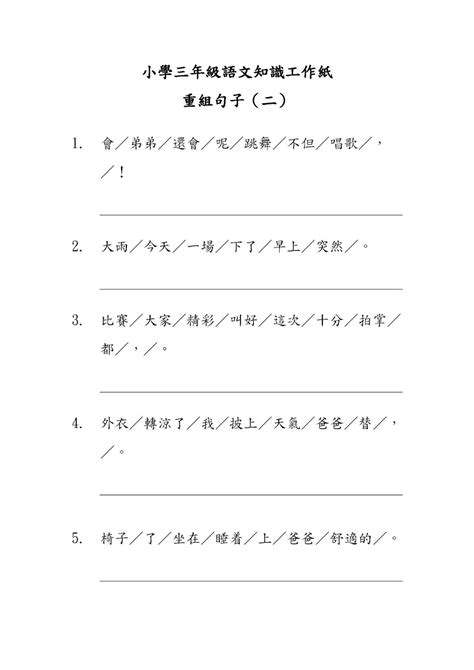 小學三年級語文知識工作紙
重組句子（二）
1. 會／弟弟／還會／呢／跳舞／不但／唱歌／，
／！
2. 大雨／今天／一場／下了／早上／突然／。
3. 比賽／大家／精彩／叫好／這次／十分／拍掌／
都／，／。
4. 外衣／轉涼了／我／披上／天氣／爸爸／替／，
／。
5. 椅子／了／坐在／睡着／上／爸爸／舒適的／。